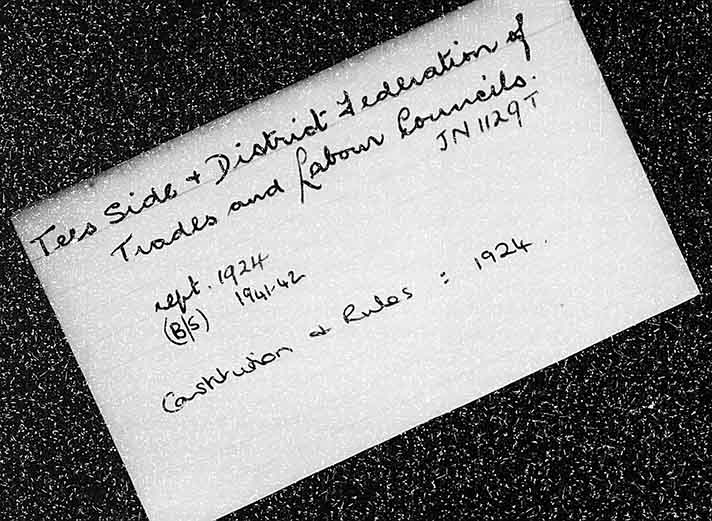 Tees Side + District Federation of
Trades and Labour Councils.
JN 1129T
rept. 1924
(B/S) 1941-42
Constitution + Rules : 1924.